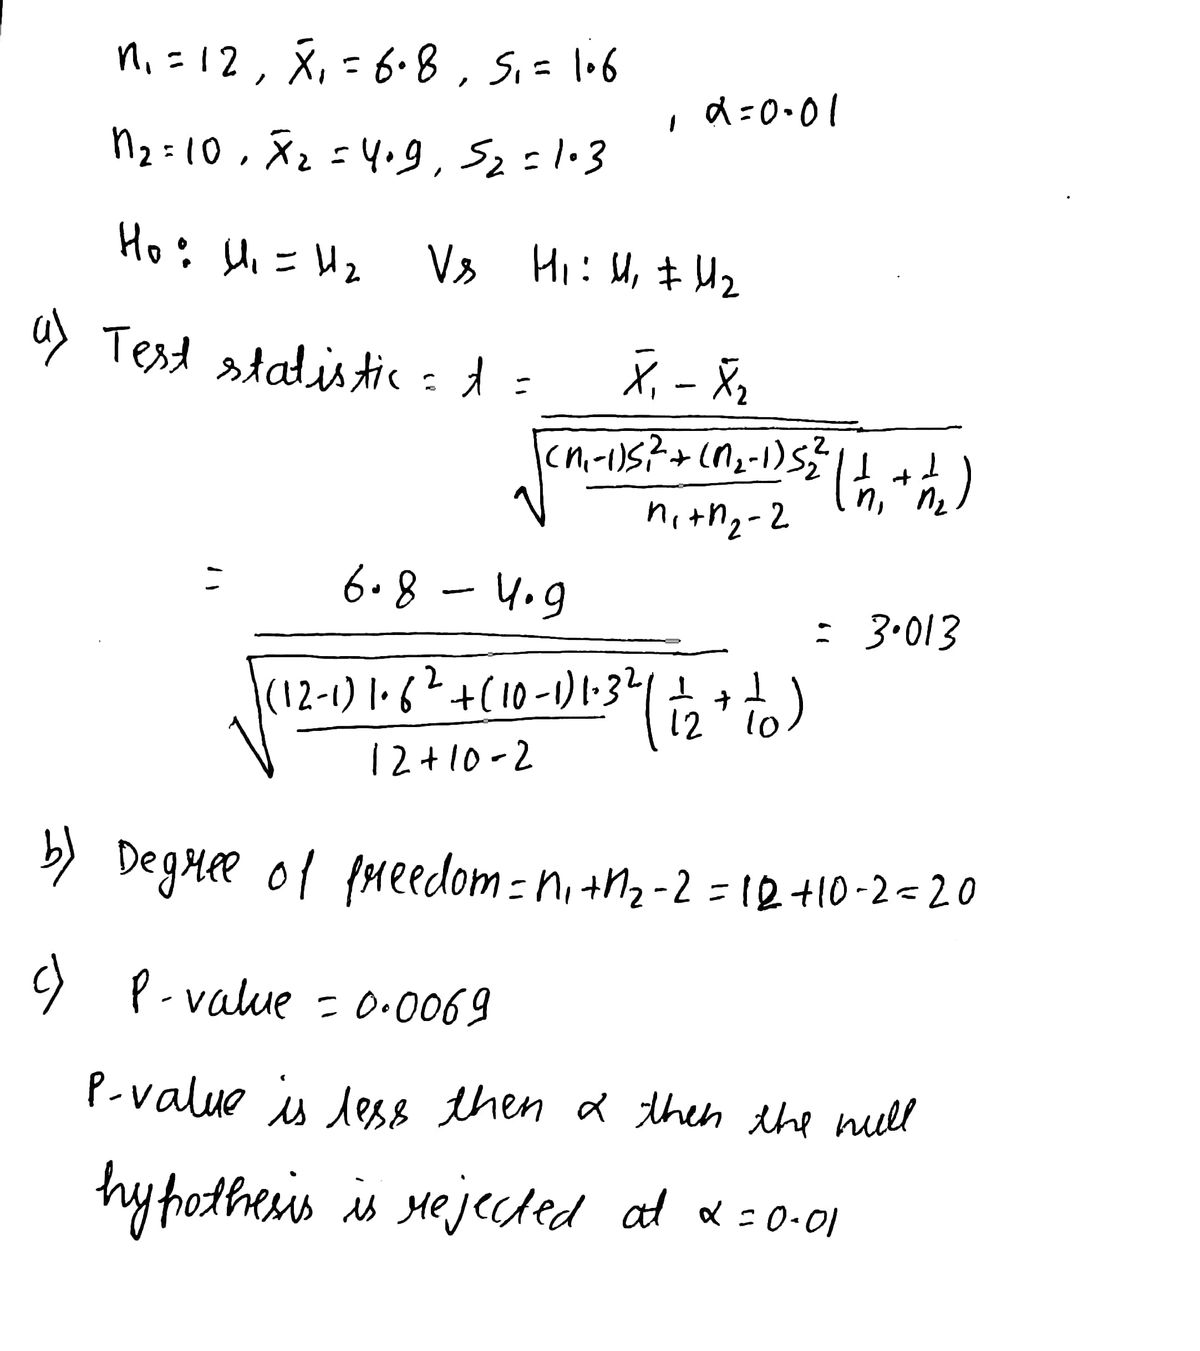 n₁ = 12, x̄₁ = 6.8, S₁ = 1.6
, α = 0.01
n₂ = 10, x̄₂ = 4.9, S₂ = 1.3
H₀: μ₁ = μ₂ Vs H₁: μ₁ ≠ μ₂
a) Test statistic = t = (X̄₁ − X̄₂) / √( ((n₁-1)S₁² + (n₂-1)S₂²) / (n₁+n₂-2) (1/n₁ + 1/n₂) )
= (6.8 − 4.9) / √( ((12-1) 1.6² + (10-1) 1.3²) / (12+10-2) (1/12 + 1/10) ) = 3.013
b) Degree of freedom = n₁+n₂-2 = 12+10-2 = 20
c) P-value = 0.0069
P-value is less then α then the null
hypothesis is rejected at α = 0.01